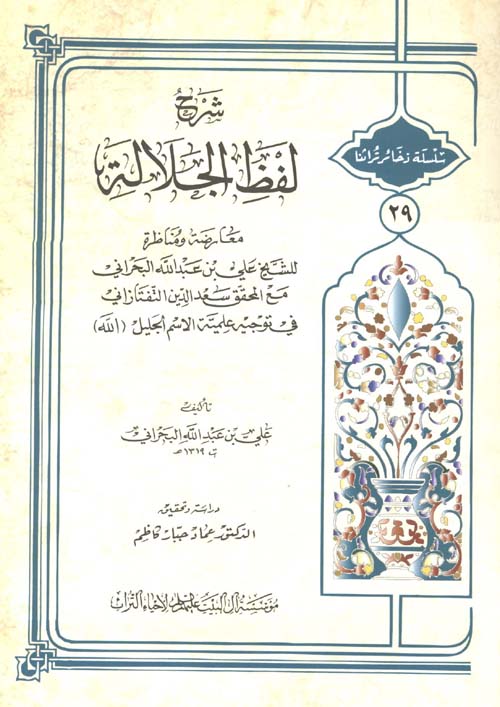 شرح
لفظ الجلالة
معارضة ومناظرة
للشيخ علي بن عبد الله البحراني
مع المحقق سعد الدين التفتازاني
في توجيه علمية الاسم الجليل (الله)
تأليف
علي بن عبد الله البحراني
ت ١٣١٩ هـ
دراسة وتحقيق
الدكتور عماد جبار كاظم
مؤسسة آل البيت عليهم السلام لإحياء التراث
سلسلة ذخائر تراثنا
٢٩